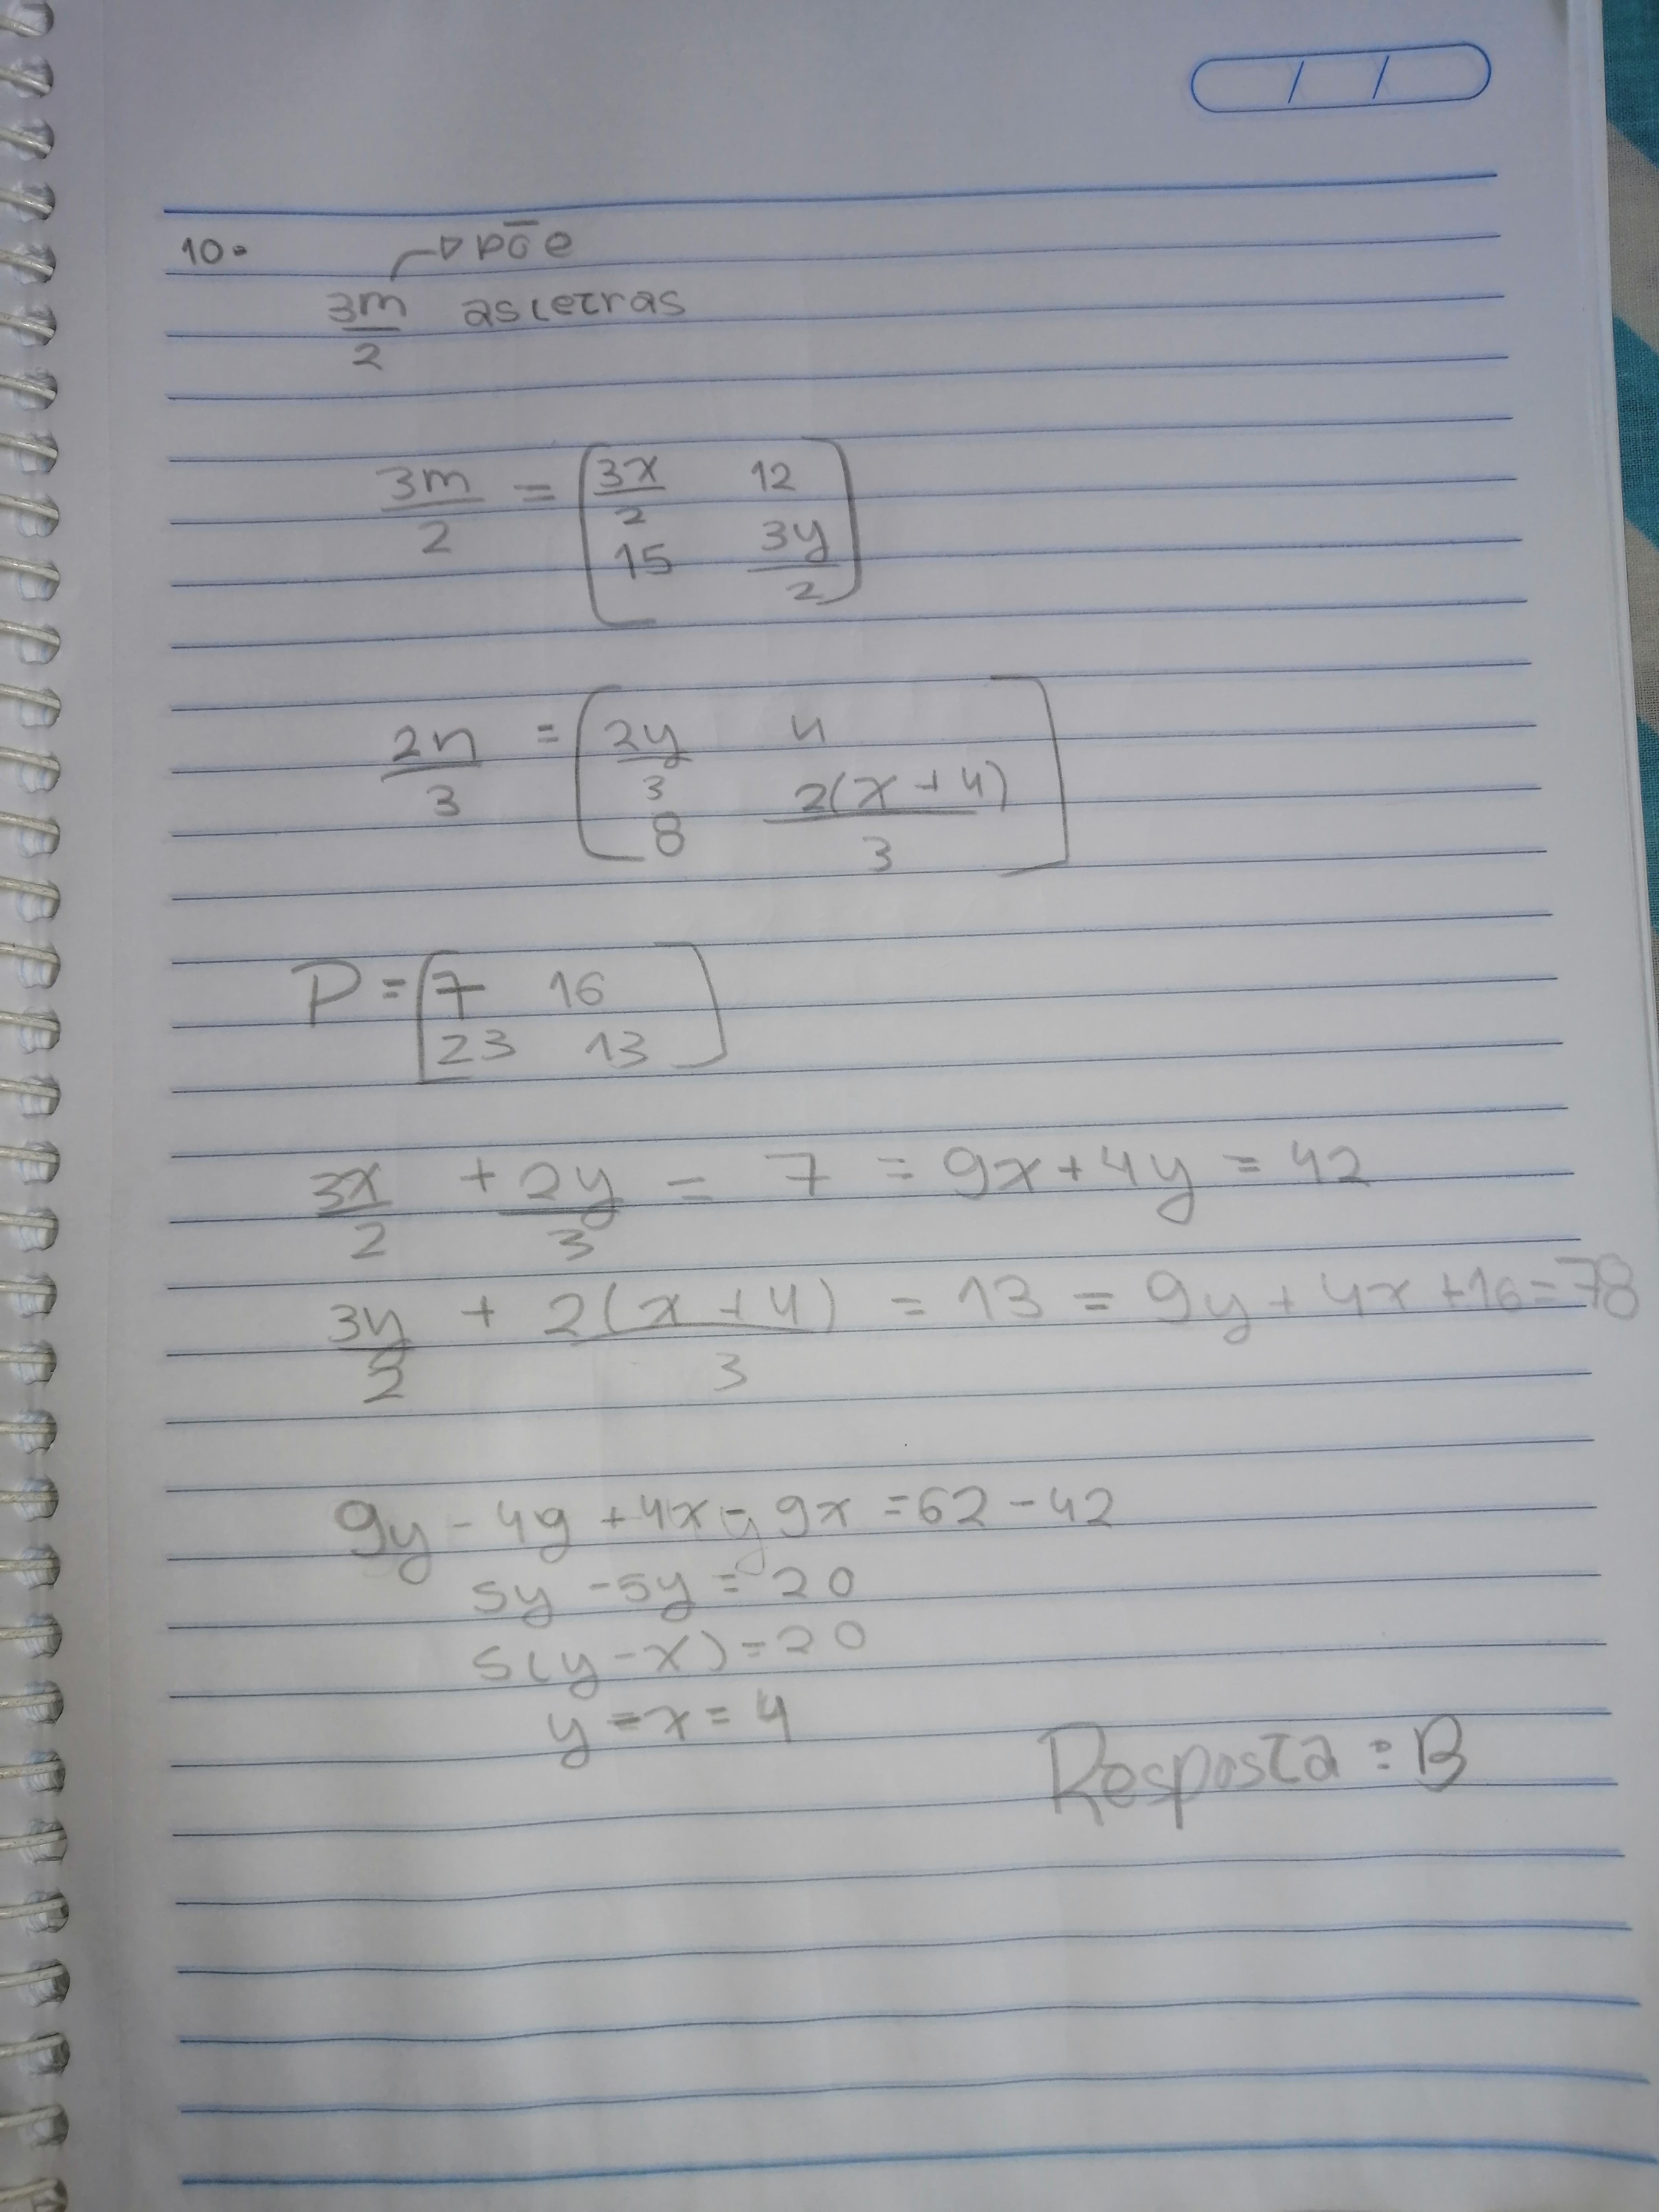 10.
→ põe
3m/2 as letras
3m/2 = [3x/2 12
15 3y/2]
2n/3 = [2y/3 4
8 2(x+4)/3]
P = [7 16
23 13]
3x/2 + 2y/3 = 7 = 9x+4y = 42
3y/2 + 2(x+4)/3 = 13 = 9y + 4x + 16 = 78
9y - 4y + 4x - 9x = 62 - 42
5y - 5y = 20
5(y - x) = 20
y = x = 4
Resposta: B